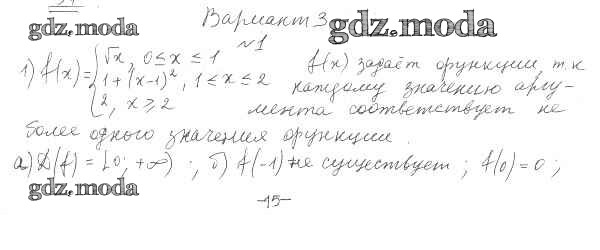 gdz.moda
Вариант 3 gdz.moda
№1
1) f(x) = { √x, 0 ≤ x ≤ 1
1 + (x-1)², 1 ≤ x ≤ 2
2, x ≥ 2
f(x) задаёт функции, т.к
каждому значению аргу-
мента соответствует не
более одного значения функции.
а) D(f) = [0; +∞) ; б) f(-1) не существует ; f(0) = 0 ;
gdz.moda
-15-